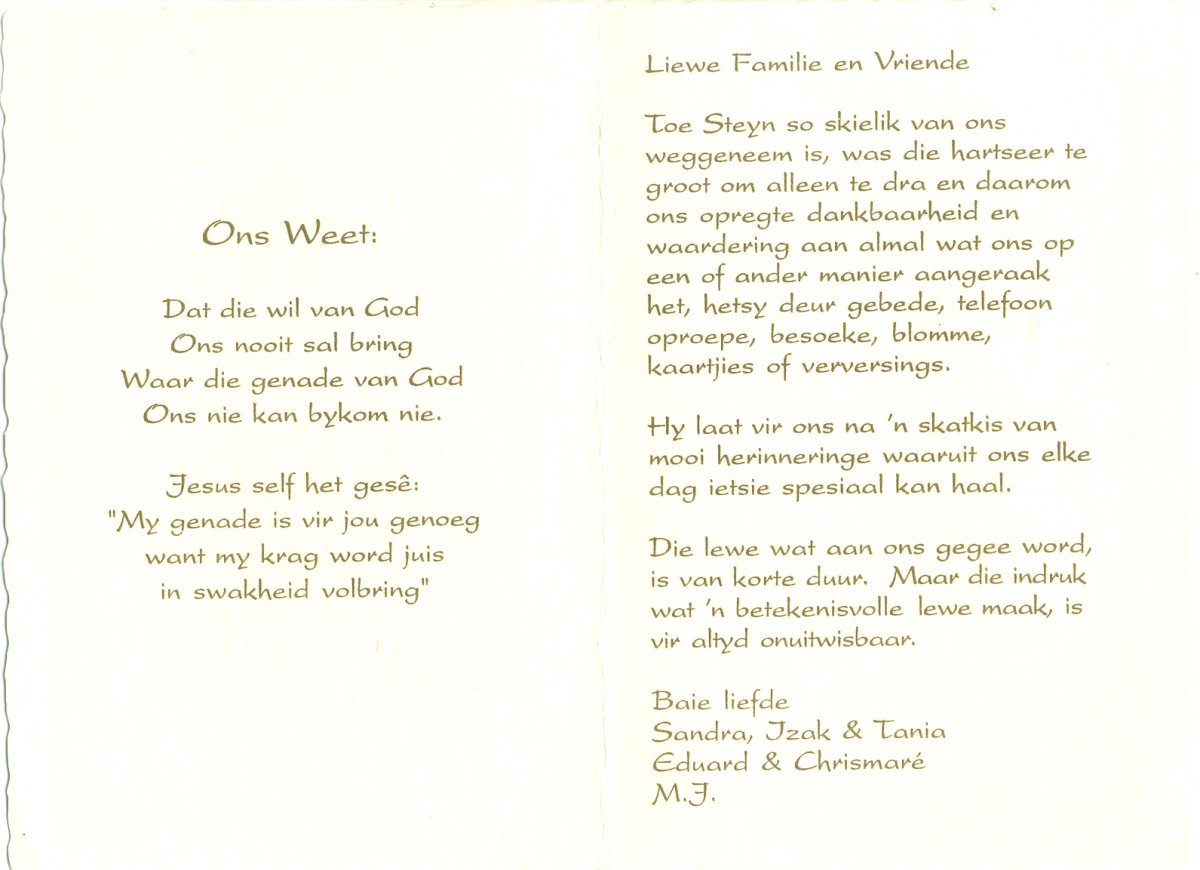 Ons Weet:
Dat die wil van God
Ons nooit sal bring
Waar die genade van God
Ons nie kan bykom nie.
Jesus self het gesê:
"My genade is vir jou genoeg
want my krag word juis
in swakheid volbring"
Liewe Familie en Vriende
Toe Steyn so skielik van ons
weggeneem is, was die hartseer te
groot om alleen te dra en daarom
ons opregte dankbaarheid en
waardering aan almal wat ons op
een of ander manier aangeraak
het, hetsy deur gebede, telefoon
oproepe, besoeke, blomme,
kaartjies of verversings.
Hy laat vir ons na 'n skatkis van
mooi herinneringe waaruit ons elke
dag ietsie spesiaal kan haal.
Die lewe wat aan ons gegee word,
is van korte duur. Maar die indruk
wat 'n betekenisvolle lewe maak, is
vir altyd onuitwisbaar.
Baie liefde
Sandra, Izak & Tania
Eduard & Chrismaré
M.J.